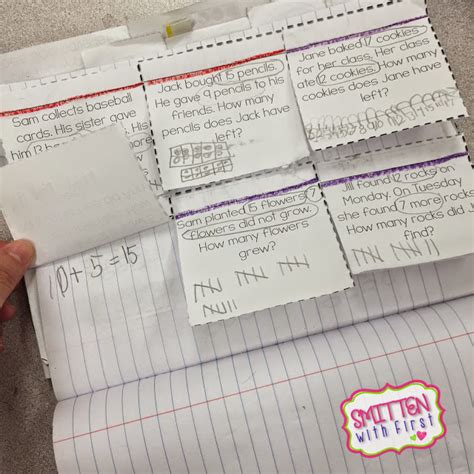 Sam collects baseball
cards. His sister gave
him 13
Jack bought 15 pencils.
He gave 9 pencils to his
friends. How many
pencils does Jack have
left?
Jane baked 17 cookies
for her class. Her class
ate 12 cookies. How many
cookies does Jane have
left?
Sam planted 15 flowers. 7
flowers did not grow.
How many flowers
grew?
Jill found 12 rocks on
Monday. On Tuesday
she found 7 more rocks.
How many rocks did
find?
10+5=15
SMITTEN
with First